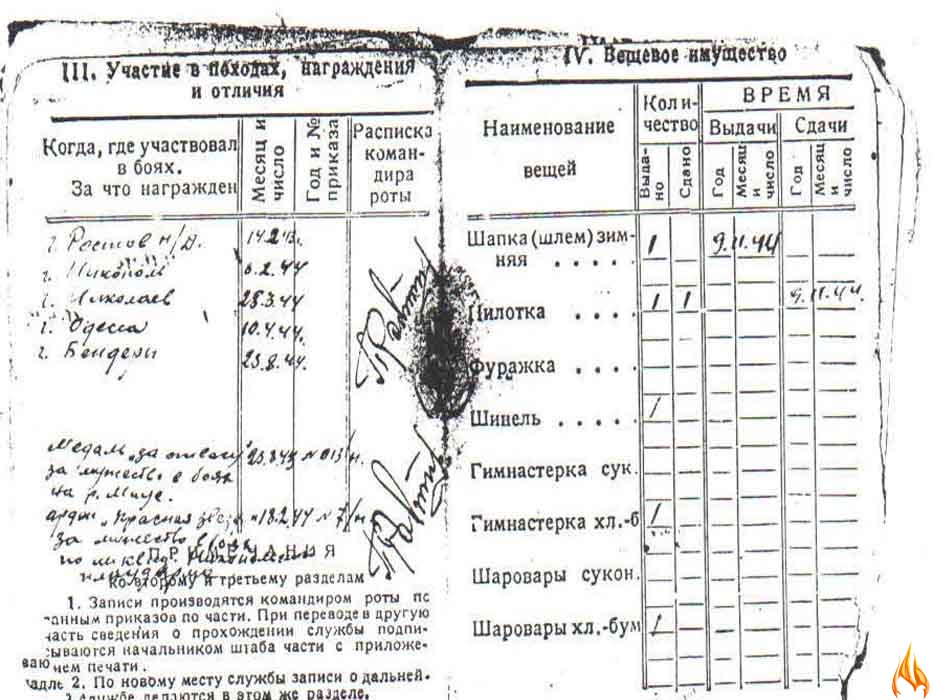 III. Участие в походах, награждения
и отличия
Когда, где участвовал
в боях.
За что награжден
Месяц и
число
Год и №
приказа
Расписка
коман-
дира
роты
г. Ростов н/Д. 14.2.43.
г. Никополь 8.2.44
г. Николаев 28.3.44
г. Одесса 10.4.44.
г. Бендеры 23.8.44.
Медаль "за отвагу"
за мужество в боях
на р. Миус.
орден "Красная звезда" 18.2.44 № 7/н
за мужество в боях
по ликвид. Никопольск
плацдарма
ПРИМЕЧАНИЯ
ко второму и третьему разделам
1. Записи производятся командиром роты по
данным приказов по части. При переводе в другую
часть сведения о прохождении службы подпи-
сываются начальником штаба части с приложе-
нием печати.
2. По новому месту службы записи о дальней-
службе делаются в этом же разделе.
IV. Вещевое имущество
Наименование
вещей
Коли-
чество
ВРЕМЯ
Выдачи
Сдачи
Выда-
но
Сдано
Год
Месяц
и
число
Год
Месяц
и
число
Шапка (шлем) зим-
няя . . . . . 1 9.11.44
Пилотка . . . . 1 1 9.11.44.
Фуражка . . . .
Шинель . . . . . 1
Гимнастерка сук.
Гимнастерка хл.-б 1
Шаровары сукон.
Шаровары хл.-бум 1